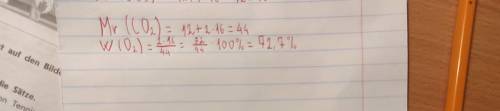 Mr (CO₂) = 12+2·16=44
W(O₂) = 2·16/44 = 32/44 · 100% = 72,7%
t auf den Bilde
die Sätze.
on Tenni